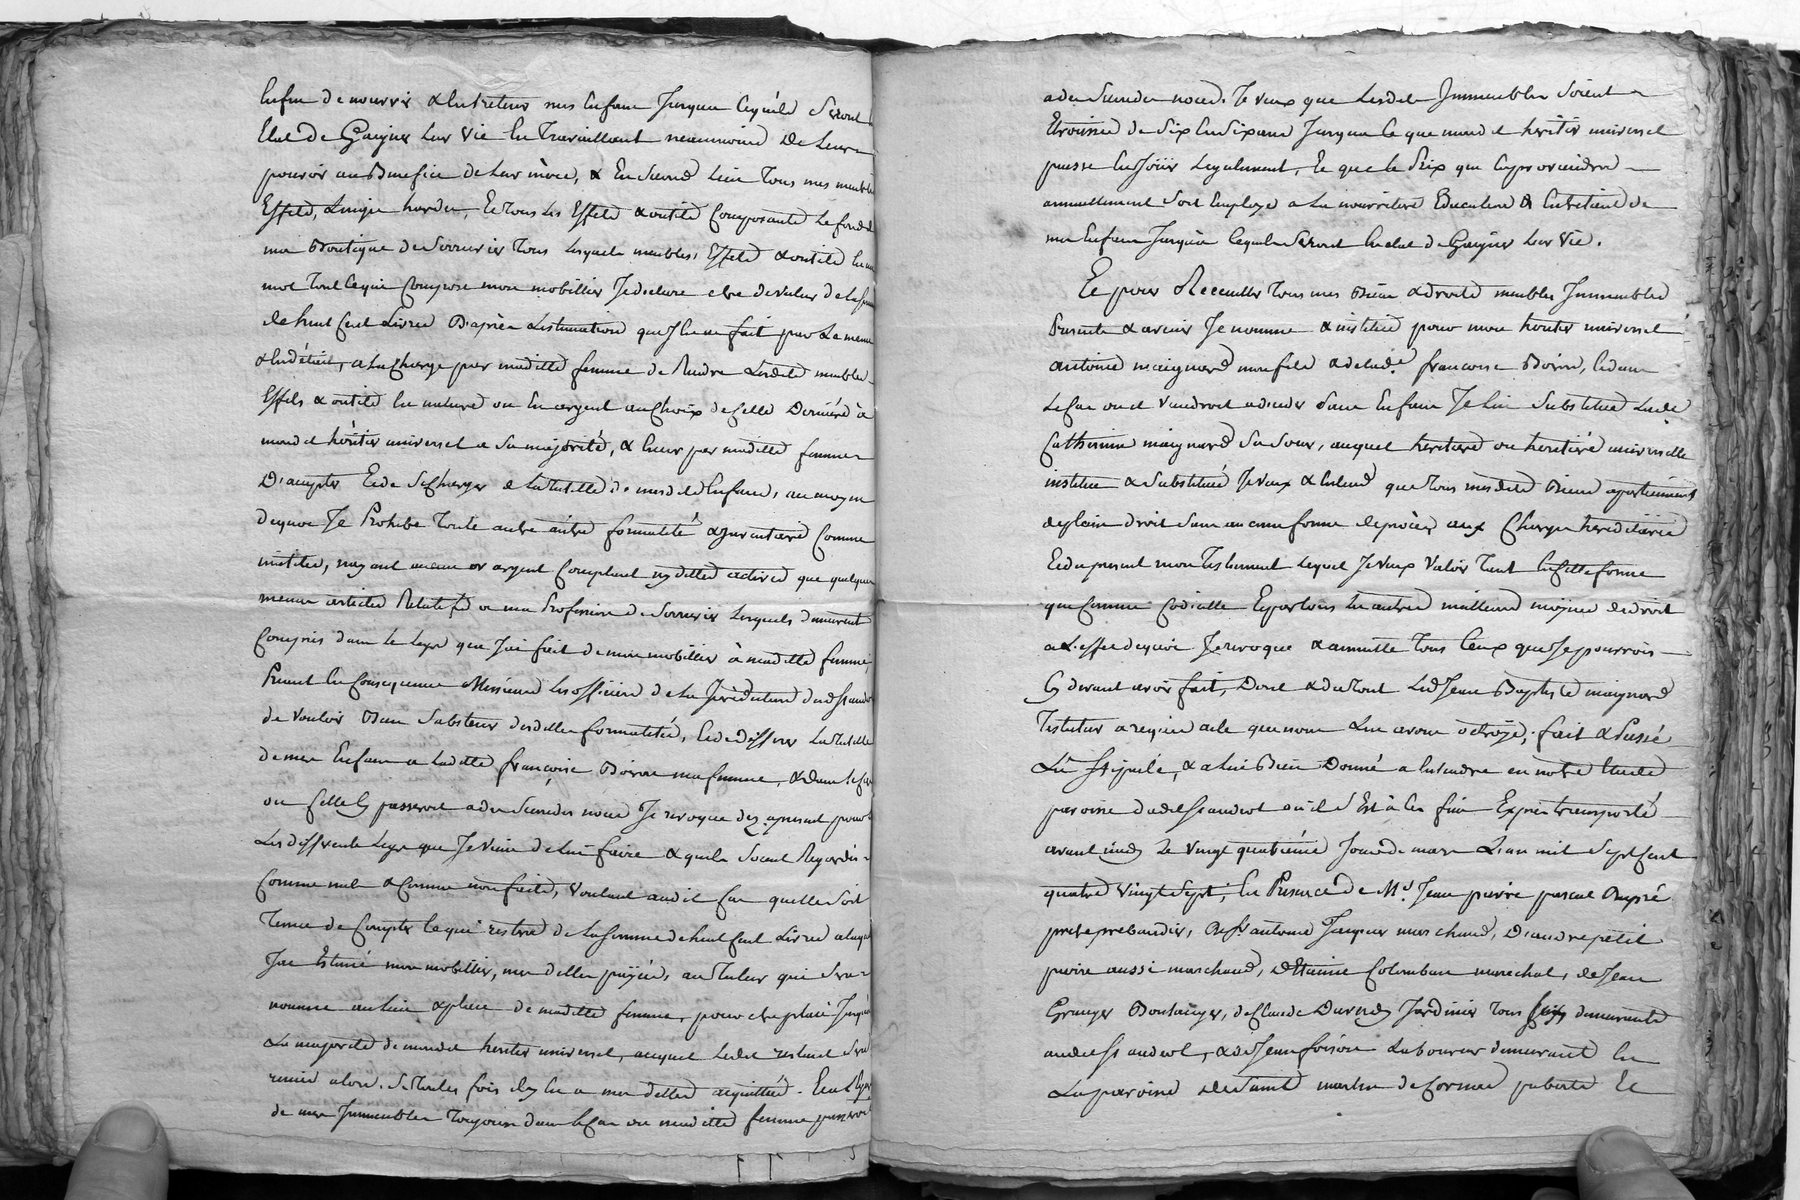 Enfin de nourrir & Entretenir mes Enfans Jusques Cequ'ils Seront En
Etat de Gaigner Leur Vie En Travaillant neanmoins De Leur
pouvoir au Benefice de Leur mère, & En Second Lieu Tous mes meubles
Effets, Linges hardes, Et tous Les Effets & outils Composants Le fond de
ma Boutique de Serrurier Tous Lesquels meubles, Effets & outils En un
mot Tout Cequi Compose mon mobillier Je declare etre de valeur de la somme
de huit Cent Livres D'après Lestimation que J'En ai fait par Le menu
& En détail, a la Charge par maditte femme de Rendre Lesdits meubles
Effets & outils En nature ou En argent au Choix de Celle Dernière à
mondit héritier universel a Sa majorité, & Encor par maditte femme
D'accepter Et de se Charger de la Tutelle de mesdits Enfans, au moyen
dequoi Je Prohibe Toute autre formalité & Inventaire Comme
inutiles, n'ayant aucun or argent Comptant ny dettes actives que quelques
menus articles Relatifs a ma Profession de Serrurier Lesquels demeurent
Compris dans Le Legs que J'ai fait de mon mobilier à maditte femme,
Priant En Consequence Messieurs Les officiers de La Jurisdiction dudit St andeol
de Vouloir Bien S'abstenir desdittes formalités, Et de defferer La Tutelle
de mes Enfans a Laditte françoise Boiron ma femme, & dans Le Cas
ou Celle Cy passeroit a des Secondes noces Je revoque dez apresent pour Lors
Les differents Legs que Je Viens de Lui faire & quils Soient Regardés
Comme nuls & Comme non faits, voulant audit Cas quelle Soit
Tenue de Compter Cequi restera de La Somme de huit Cent Livres a laquelle
J'ai Estimé mon mobillier, mes dettes payées, au Tuteur qui Sera
nommé au Lieu & place de maditte femme, pour etre placé Jusqu'à
La majorité de mondit heritier universel, auquel Ledit restant Sera
remis alors. Si Toutes fois Il y En a mes dettes acquittées. Et a L'Egard
de mes Immeubles Toujours dans Le Cas ou maditte femme passeroit
a des Secondes noces. Je veux que Lesdits Immeubles Soient
de Six En Six ans Jusques Ce que mondit heritier universel
puisse En Jouir Legalement, Et que Le Prix qui En proviendra
annuellement Soit Employé a La nourriture Education & Entretient de
mes Enfans Jusqu'à Cequils Seront En Etat de Gaigner Leur Vie.
Et pour Recceuillir Tous mes Biens & droits meubles Immeubles
Presents & avenir Je nomme & institue pour mon heritier universel
antoine maignard mon fils & de Lad.e françoise Boiron, Et dans
Le Cas ou il Viendroit a deceder Sans Enfans Je Lui Substitue Lade
Catherine maignard Sa Sœur, auquel heritier ou heritière universelle
institué & Substitué Je Veux & Entend que Tous mesdits Biens apartiennent
de plein droit Sans aucune forme de procès, aux Charges hereditaires
Et du present mon Testament Lequel Je Veux Valoir Tant En Cette forme
que Comme Codicille Et par Tous Les autres meilleurs moyens de droit
a L'effet dequoi Je revoque & annulle Tous Ceux que Je pourrois
Cy devant avoir fait, Dont & du Tout Led. Jean Baptiste maignard
Testateur a requis acte que nous Lui avons octroyé; fait & Passé
Lû Stipulé, & a Lui Bien Donné a Entendre en notre Etude
paroisse dudit St andeol où il S'Est à Ces fins Exprès transporté
avant midy Le Vingt quatrième Jour de mars L'an mil Sept Cent
quatre Vingt Sept; En Presence de Mr. Jean pierre pascal Dupré
prestre prebandier, De Sr. antoine Jacques marchand, D'andre petit
pierre aussi marchand, d'Etienne Colomban marechal, de Jean
Granger Boulanger, de Claude Durand Jardinier Tous Six demeurants
audit St andeol, & de Jean foison Laboureur demeurant En
La paroisse de Saint martin de Cormes puberte Et